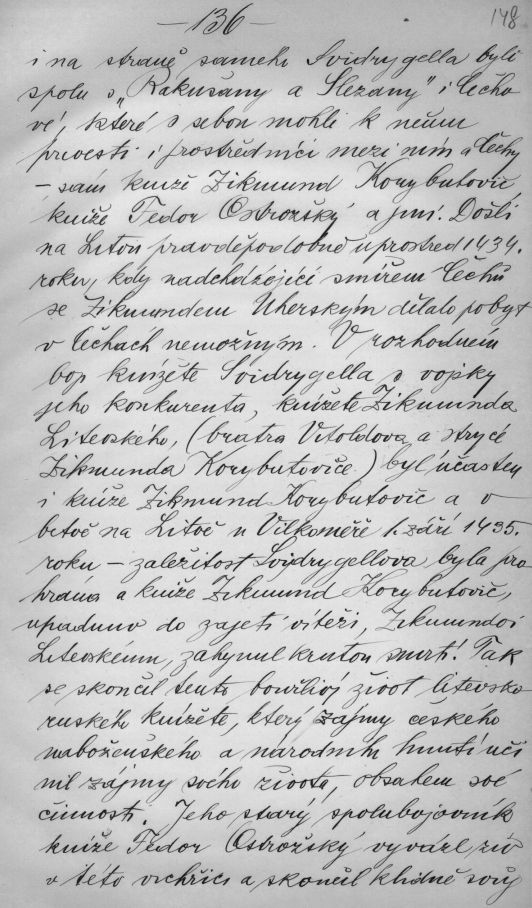 — 136 —
148
i na straně sameho Svidrygella byli
spolu s „Rakušany a Slezany" i Čecho
vé, které s sebou mohli k němu
přivesti i prostředníci mezi ním a Čechy
— sám kníže Zikmund Korybutovič
kníže Fedor Ostrožský a jiní. Došli
na Litvu pravděpodobně uprostřed 1434.
roku, kdy nadcházející smířem Čechů
se Zikmundem Uherským dělalo pobyt
v Čechách nemožným. V rozhodném
boji knížete Svidrygella s vojsky
jeho konkurenta, knížete Zikmunda
Litevského, (bratra Vitoldova a strýce
Zikmunda Korybutoviče) byl účasten
i kníže Zikmund Korybutovič a v
bitvě na Litvě u Vilkoměře 1. září 1435.
roku — zaležitost Svidrygellova byla pro
hrána a kníže Zikmund Korybutovič,
upadnuv do zajetí vítězi, Zikmundovi
Litevskému, zahynul krutou smrtí. Tak
se skončil tento bouřlivý život litevsko
ruského knížete, který zájmy českého
naboženského a národního hnutí uči
nil zájmy svého života, obsahem své
činnosti. Jeho starý spolubojovník
kníže Fedor Ostrožský vyvázl živ
v této vichřici a skončil klidně svůj